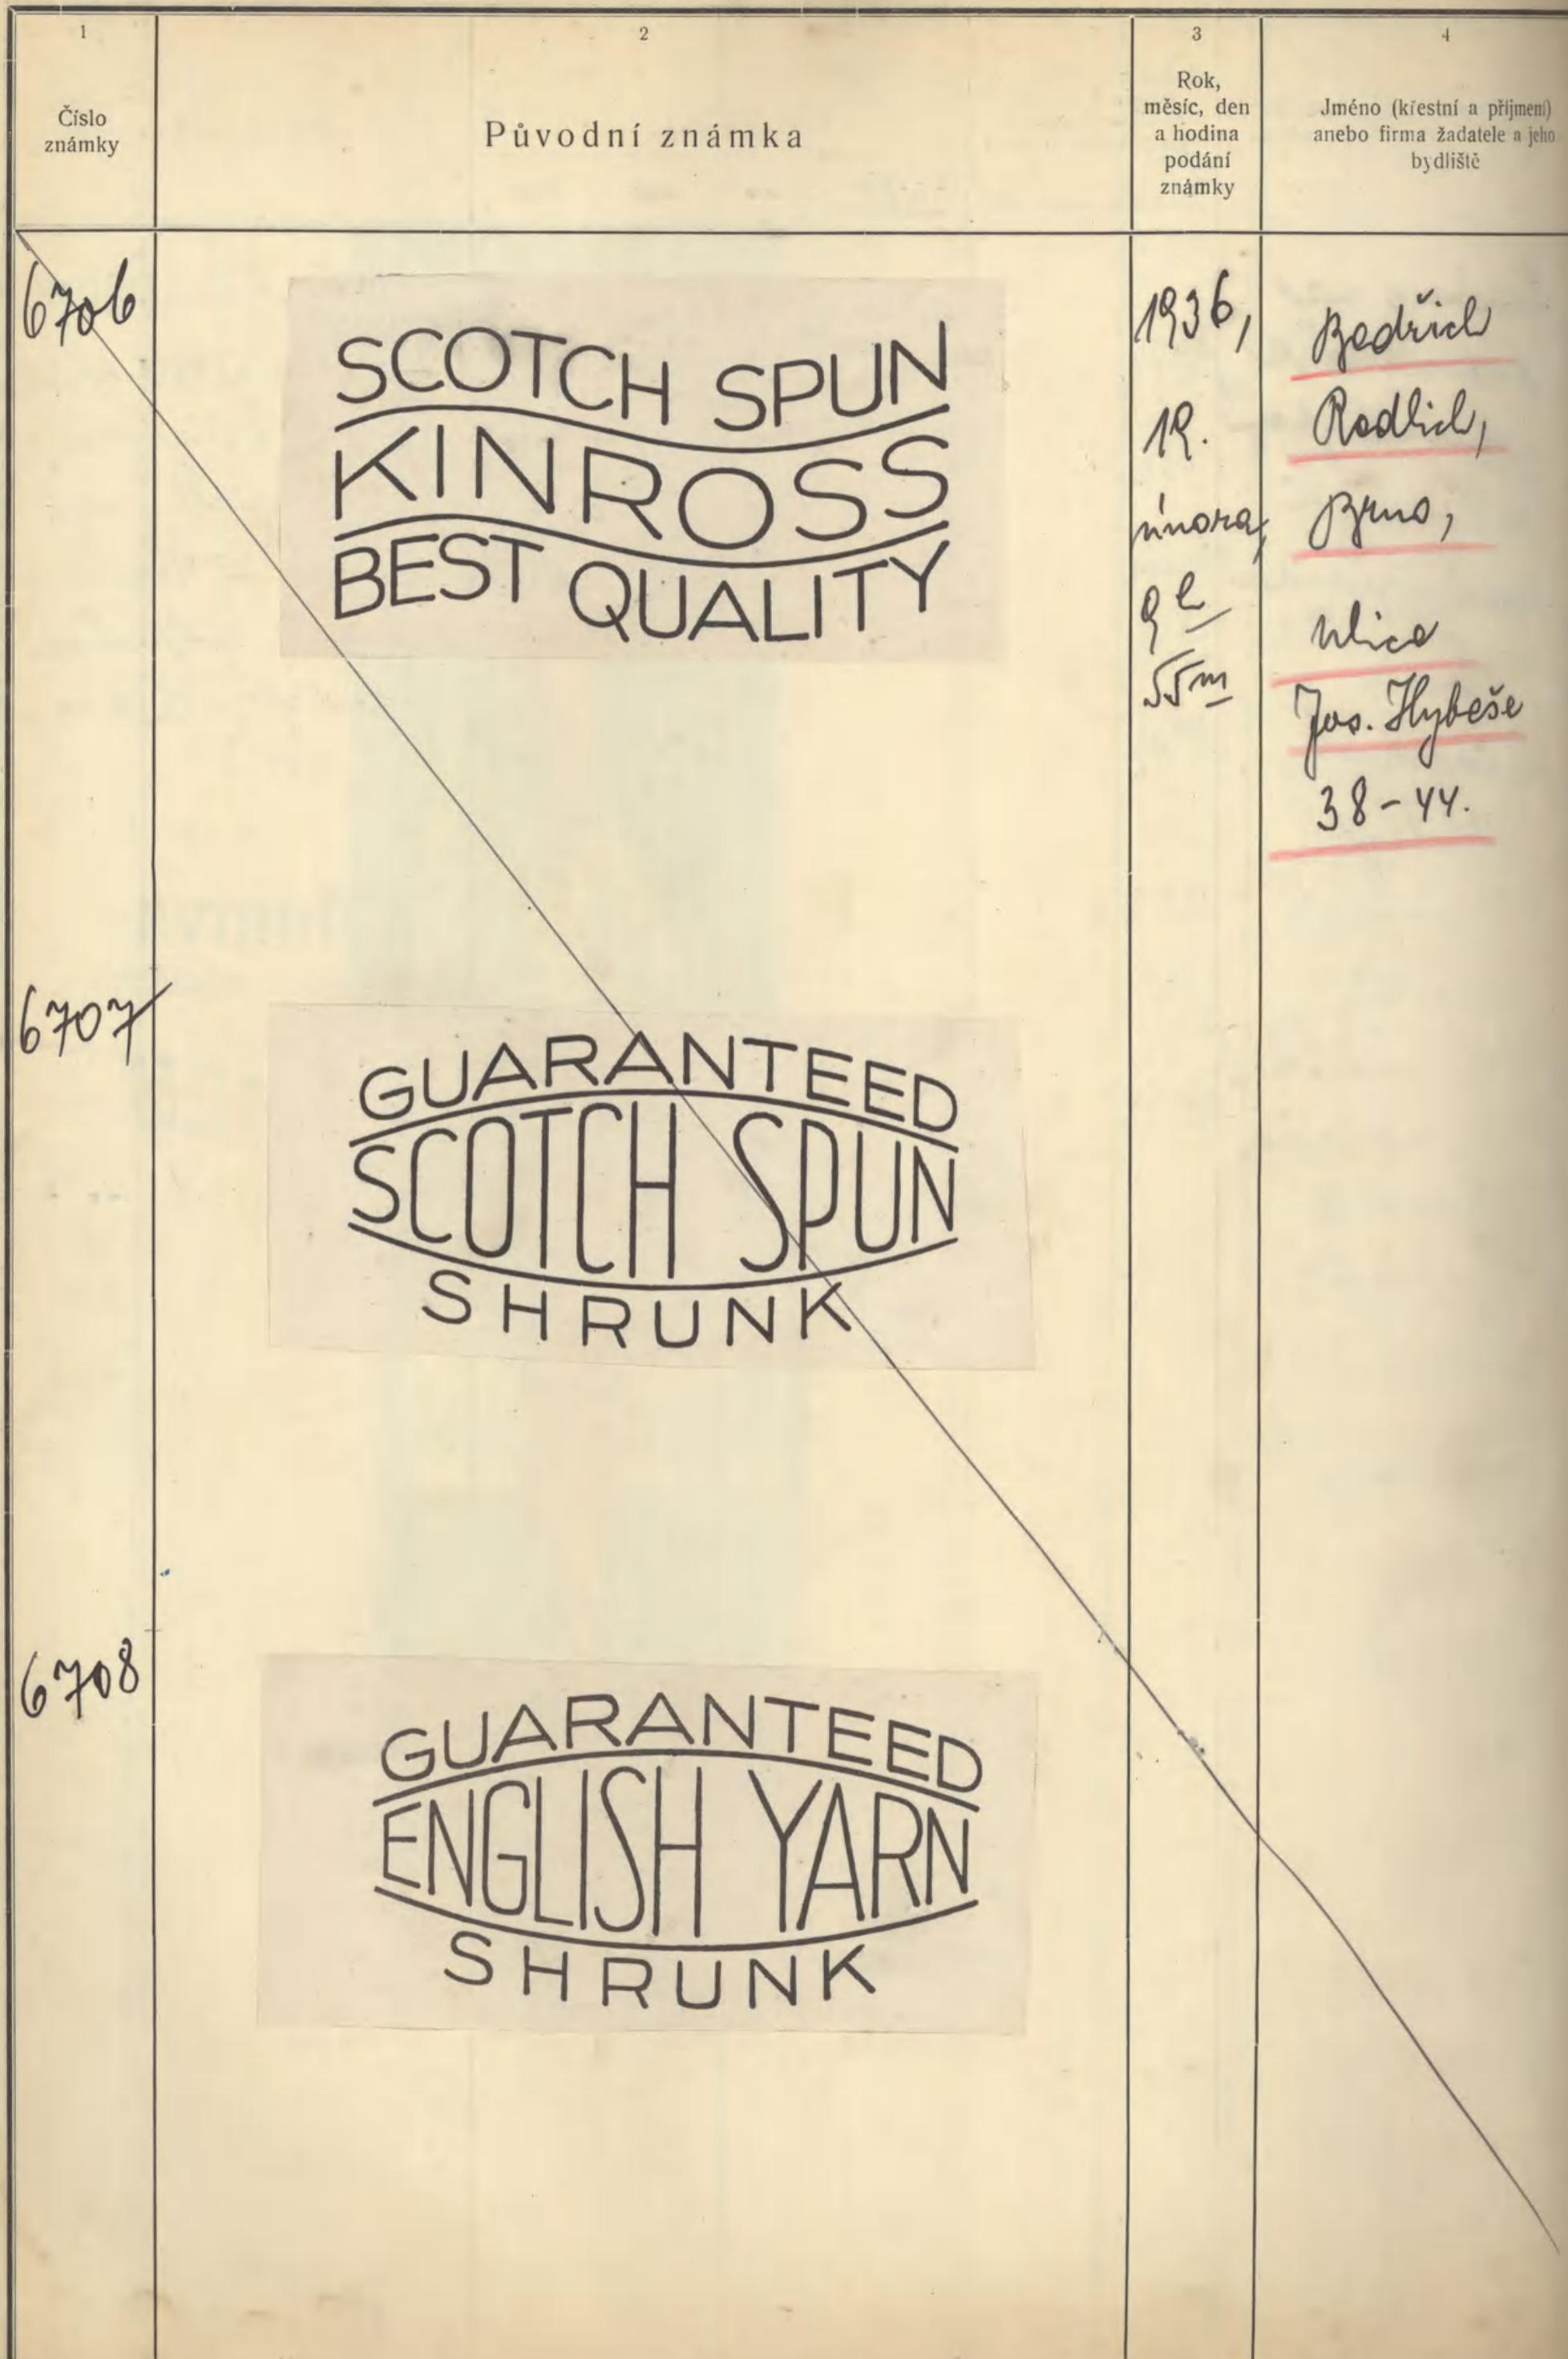 1
2
3
4
Číslo
známky
Původní známka
Rok,
měsíc, den
a hodina
podání
známky
Jméno (křestní a příjmení)
anebo firma žadatele a jeho
bydliště
6706
SCOTCH SPUN
KINROSS
BEST QUALITY
1936,
19.
února,
9 h
55 m
Bedřich
Redlich,
Brno,
ulice
Jos. Hybeše
38-44.
6707
GUARANTEED
SCOTCH SPUN
SHRUNK
6708
GUARANTEED
ENGLISH YARN
SHRUNK